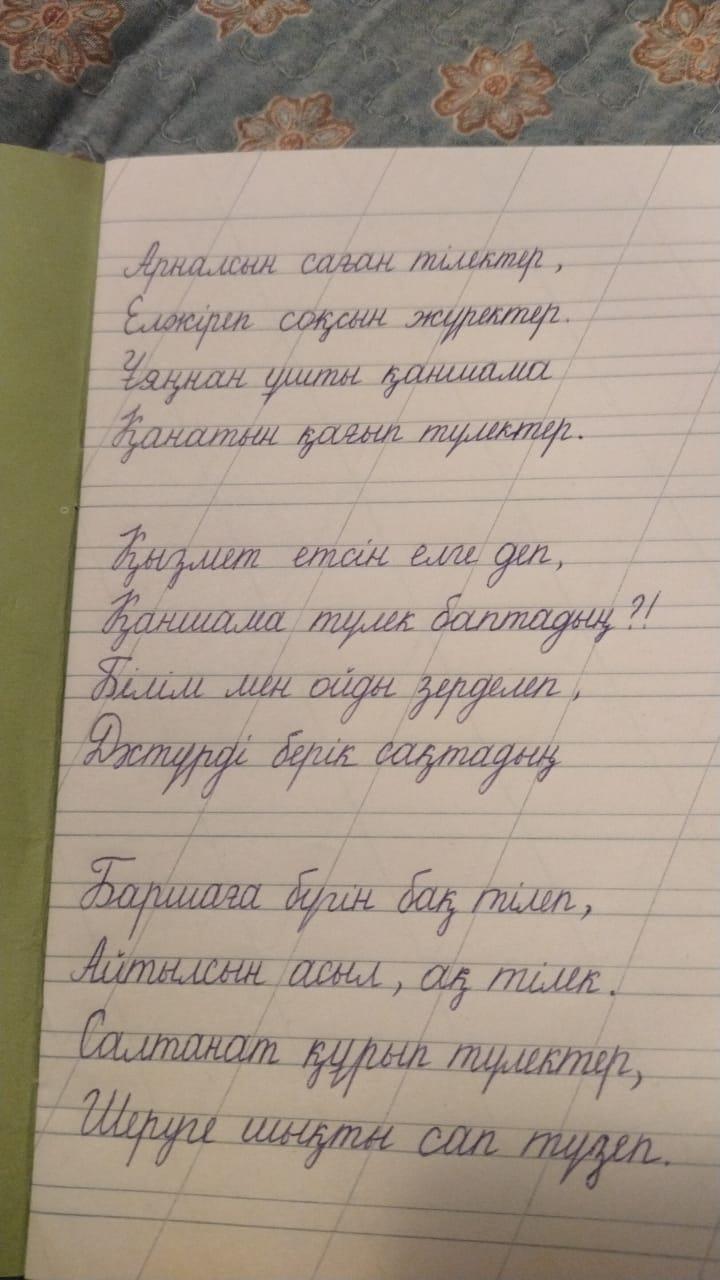 Арналсын саған тілектер,
Елжіреп соқсын жүректер.
Ұяңнан ұшты қаншама
Қанатын қағып түлектер.
Қызмет етсін елге деп,
Қаншама түлек баптадың?!
Білім мен ойды зерделеп,
Дәстүрді берік сақтадың
Баршаға бүгін бақ тілеп,
Айтылсын асыл, ақ тілек.
Салтанат құрып түлектер,
Шеруге шықты сап түзеп.